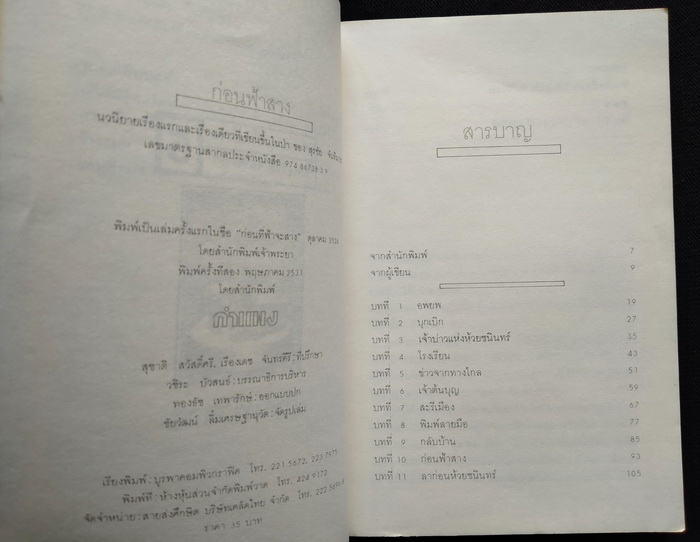 ก่อนฟ้าสาง
นวนิยายเรื่องแรกและเรื่องเดียวที่เขียนขึ้นในป่า ของ สุรชัย
เลขมาตรฐานสากลประจำหนังสือ 974
พิมพ์เป็นเล่มครั้งแรกในชื่อ "ก่อนที่ฟ้าจะสาง" ตุลาคม
โดยสำนักพิมพ์เจ้าพระยา
พิมพ์ครั้งที่สอง พฤษภาคม 2531
โดยสำนักพิมพ์
กำแพง
สุชาติ สวัสดิ์ศรี, เรืองเดช จันทรคีรี : ที่ปรึกษา
วชิระ บัวสนธ์ : บรรณาธิการบริหาร
ทองธัช เทพารักษ์ : ออกแบบปก
ชัยวัฒน์ ลิ้มเศรษฐานุวัต : จัดรูปเล่ม
เรียงพิมพ์ : บูรพาคอมพิวกราฟิค โทร. 221 5672,
พิมพ์ที่ : ห้างหุ้นส่วนจำกัดพิมพ์วาด โทร. 424 9172
จัดจำหน่าย : สายส่งศึกษิต บริษัทเคล็ดไทย จำกัด โทร.
ราคา 35 บาท
สารบาญ
จากสำนักพิมพ์ 7
จากผู้เขียน 9
บทที่ 1 อพยพ 19
บทที่ 2 บุกเบิก 27
บทที่ 3 เจ้าบ่าวแห่งห้วยชนินทร์ 35
บทที่ 4 โรงเรียน 43
บทที่ 5 ข่าวจากทางไกล 51
บทที่ 6 เจ้าต้นบุญ 59
บทที่ 7 สะรีเมือง 67
บทที่ 8 พิมพ์ลายมือ 77
บทที่ 9 กลับบ้าน 85
บทที่ 10 ก่อนฟ้าสาง 93
บทที่ 11 ลาก่อนห้วยชนินทร์ 105